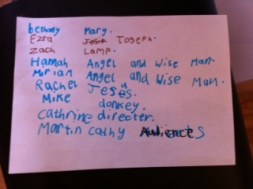 bethany Mary.
Ezra Joseph.
Zach Lamp.
Hannah Angel and Wise Man
Mirian Angel and Wise Man.
Rachel Jesas.
Mike donkey.
Cathrine directer.
Martin cathy Audiences